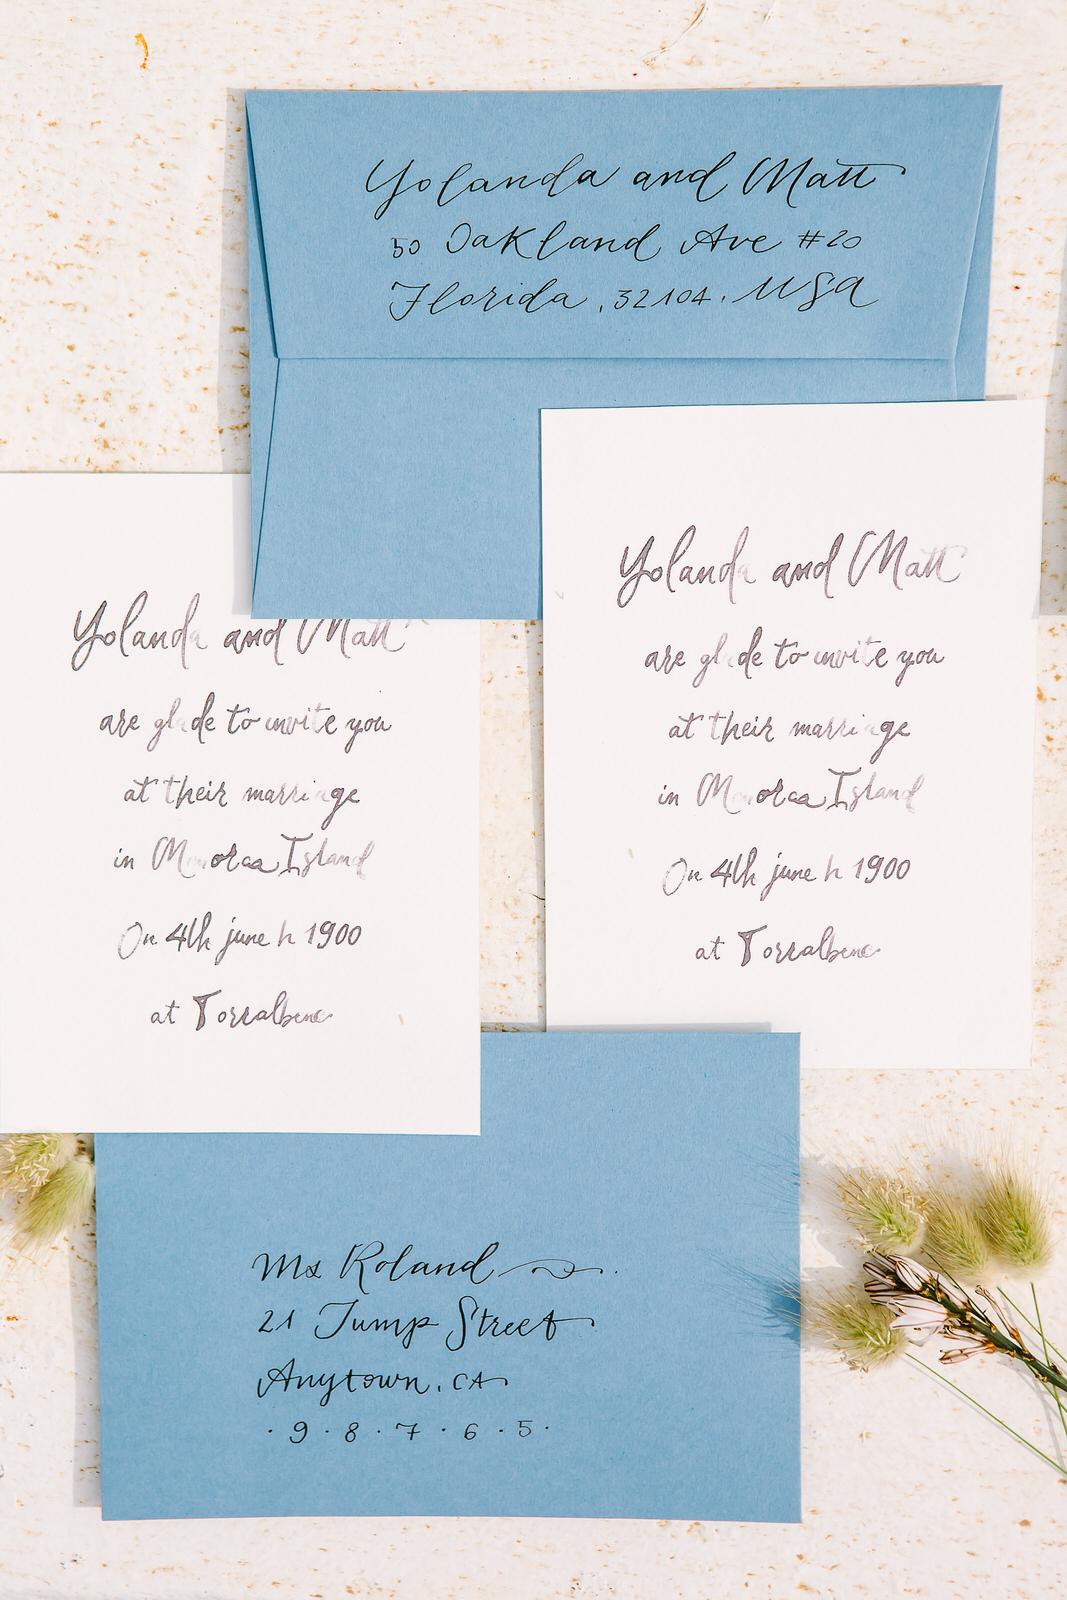 Yolanda and Matt
50 Oakland Ave #20
Florida, 32104, USA
Yolanda and Matt
are glade to invite you
at their marriage
in Menorca Island
On 4th june h 1900
at Torralbenc
Yolanda and Matt
are glade to invite you
at their marriage
in Menorca Island
On 4th june h 1900
at Torralbenc
Roland
21 Jump Street
Anytown, CA
·9·8·7·6·5·